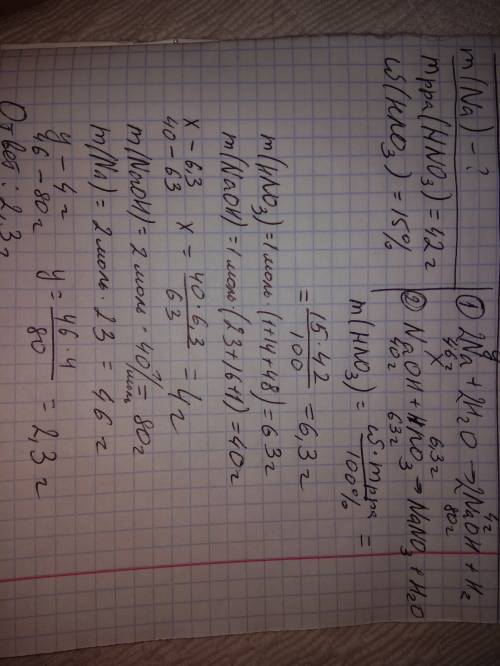 m(Na) - ?
mрра(HNO3) = 42 г
ω(HNO3) = 15%
y 4г
① 2Na + 2H2O → 2NaOH + H2
46г 80г
x 6,3г
② NaOH + HNO3 → NaNO3 + H2O
40г 63г
m(HNO3) = ω · mрра / 100% =
= 15 · 42 / 100 = 6,3 г
m(HNO3) = 1 моль · (1+14+48) = 63 г
m(NaOH) = 1 моль · (23+16+1) = 40 г
x - 6,3
40 - 63 x = 40 · 6,3 / 63 = 4 г
m(NaOH) = 2 моль · 40 г/моль = 80 г
m(Na) = 2 моль · 23 = 46 г
y - 4 г
46 - 80 г y = 46 · 4 / 80 = 2,3 г
Ответ: 2,3 г